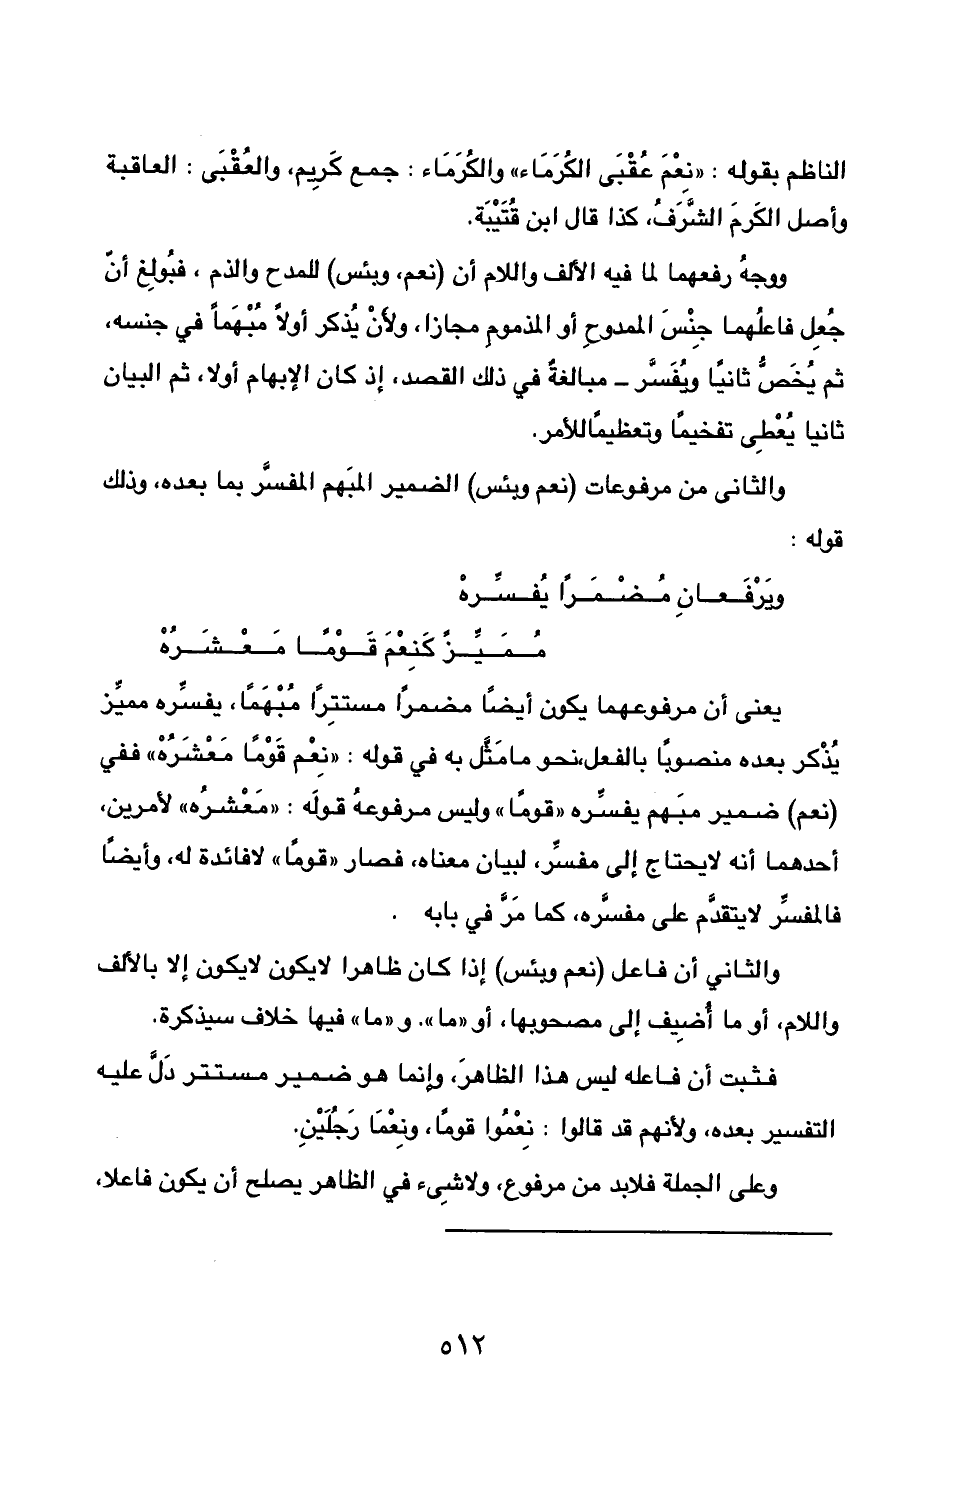 الناظم بقوله : «نِعْمَ عُقْبَى الكُرَمَاء» والكُرَمَاء : جمع كَرِيم، والعُقْبَى : العاقبة
وأصل الكَرمَ الشَّرَفُ، كذا قال ابن قُتَيْبَة.
ووجهُ رفعهما لما فيه الألف واللام أن (نعم، وبئس) للمدح والذم ، فبُولِغ أنْ
جُعِل فاعلُهما جِنْسَ الممدوحِ أو المذمومِ مجازا، ولأنْ يُذكر أولاً مُبْهَماً في جنسه،
ثم يُخَصُّ ثانيًا ويُفَسَّر ــ مبالغةٌ في ذلك القصد، إذ كان الإبهام أولا، ثم البيان
ثانيا يُعْطِى تفخيمًا وتعظيمًاللأمر.
والثانى من مرفوعات (نعم وبئس) الضمير المبَهم المفسَّر بما بعده، وذلك
قوله :
ويَرْفَعانِ مُضْمَرًا يُفسِّرهْ
مُميِّزٌ كَنِعْمَ قَوْمًا مَعْشَرُهْ
يعنى أن مرفوعهما يكون أيضاً مضمراً مستتِراً مُبْهَمًا، يفسِّره مميِّز
يُذْكر بعده منصوبًا بالفعل،نحو مامَثَّل به في قوله : «نِعْم قَوْمًا مَعْشَرُهْ» ففي
(نعم) ضمير مبَهم يفسِّره «قومًا» وليس مرفوعهُ قولَه : «مَعْشرُه» لأمرين،
أحدهما أنه لايحتاج إلى مفسِّر، لبيان معناه، فصار «قومًا» لافائدة له، وأيضاً
فالمفسِّر لايتقدَّم على مفسَّره، كما مَرَّ في بابه .
والثاني أن فاعل (نعم وبئس) إذا كان ظاهرا لايكون لايكون إلا بالألف
واللام، أو ما أُضيِف إلى مصحوبها، أو «ما». و «ما» فيها خلاف سيذكرة.
فثبت أن فاعله ليس هذا الظاهرَ، وإنما هو ضمير مستتر دَلَّ عليه
التفسير بعده، ولأنهم قد قالوا : نِعْمُوا قومًا، ونِعْمَا رَجُلَيْنِ.
وعلى الجملة فلابد من مرفوع، ولاشىء في الظاهر يصلح أن يكون فاعلا،
٥١٢